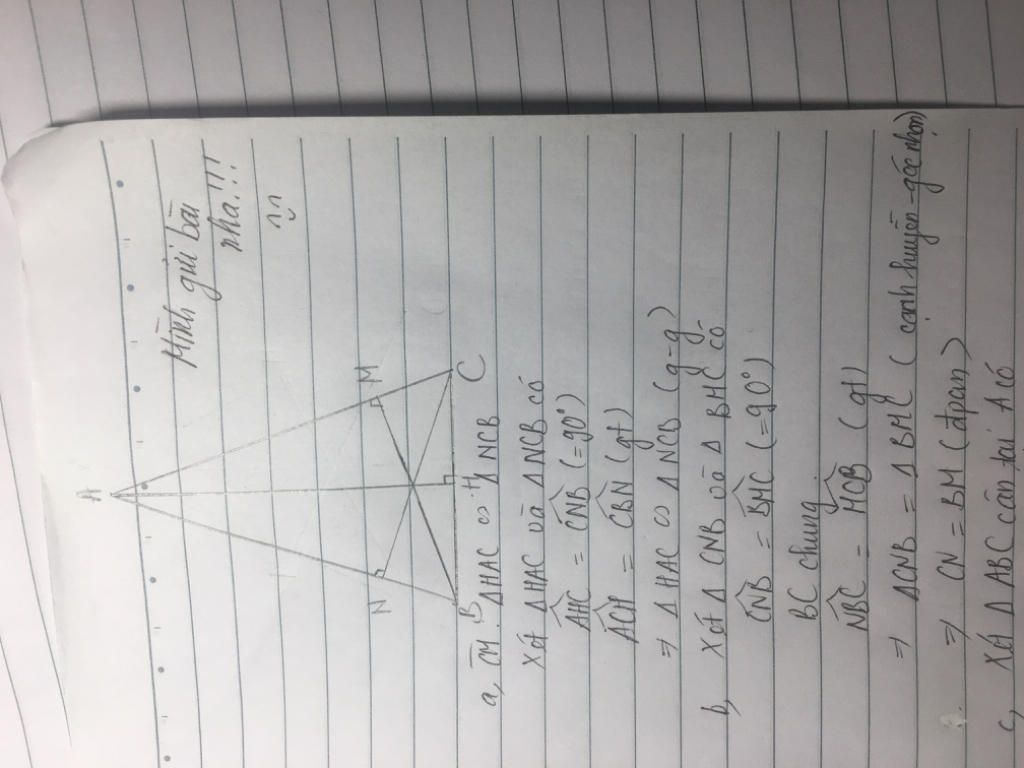 Mình gửi bài
nha!!!
A
N
M
B
H
C
a, CM: ΔHAC ∽ ΔNCB
Xét ΔHAC và ΔNCB có
AHC = CNB (=90°)
ACH = CBN (gt)
⇒ ΔHAC ∽ ΔNCB (g-g)
b, Xét ΔCNB và ΔBMC có
CNB = BMC (=90°)
BC chung
NBC = MCB (gt)
⇒ ΔCNB = ΔBMC (cạnh huyền-góc nhọn)
⇒ CN = BM (đpcm)
c, Xét ΔABC cân tại A có